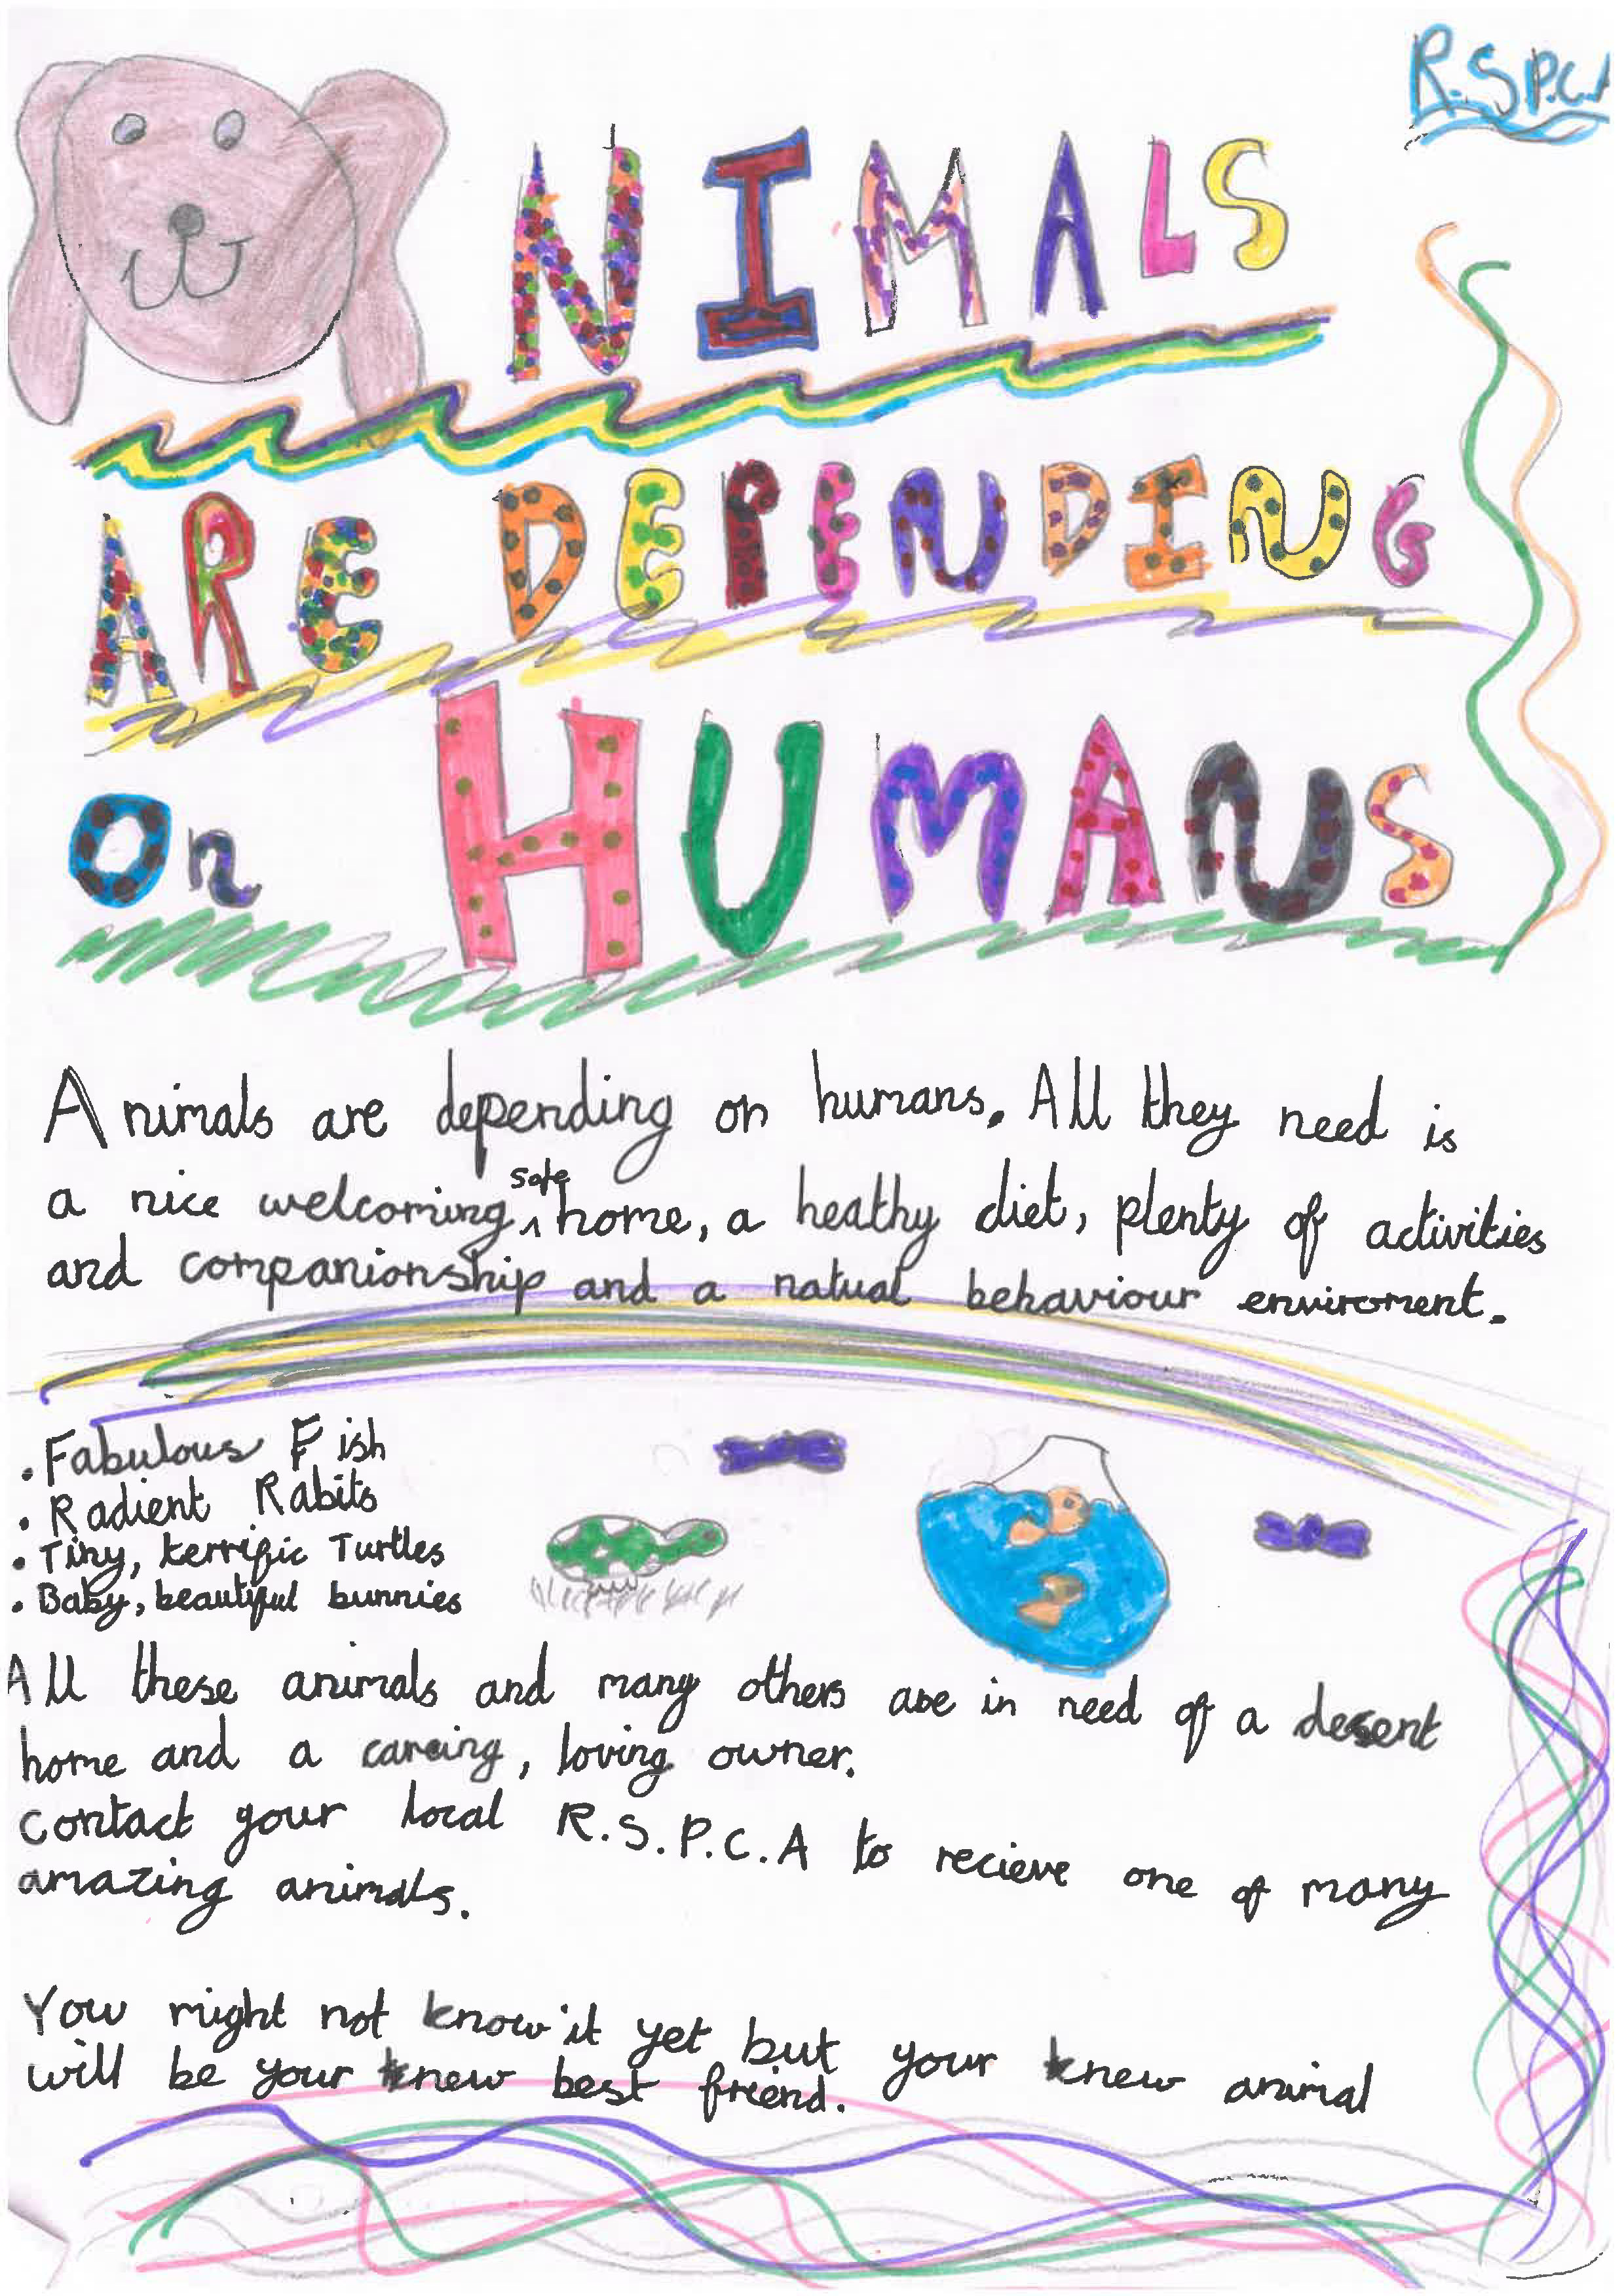 R.S.P.C.A
NIMALS
ARE DEPENDING
On HUMANS
Animals are depending on humans. All they need is
a nice welcoming safe home, a heathy diet, plenty of activities
and companionship and a natual behaviour enviroment.
. Fabulous Fish
. Radient Rabits
. Tiny, terrific Turtles
. Baby, beautiful bunnies
All these animals and many others are in need of a desent
home and a careing, loving owner.
contact your local R.S.P.C.A to recieve one of many
amazing animals.
You might not know it yet but your knew animal
will be your knew best friend.